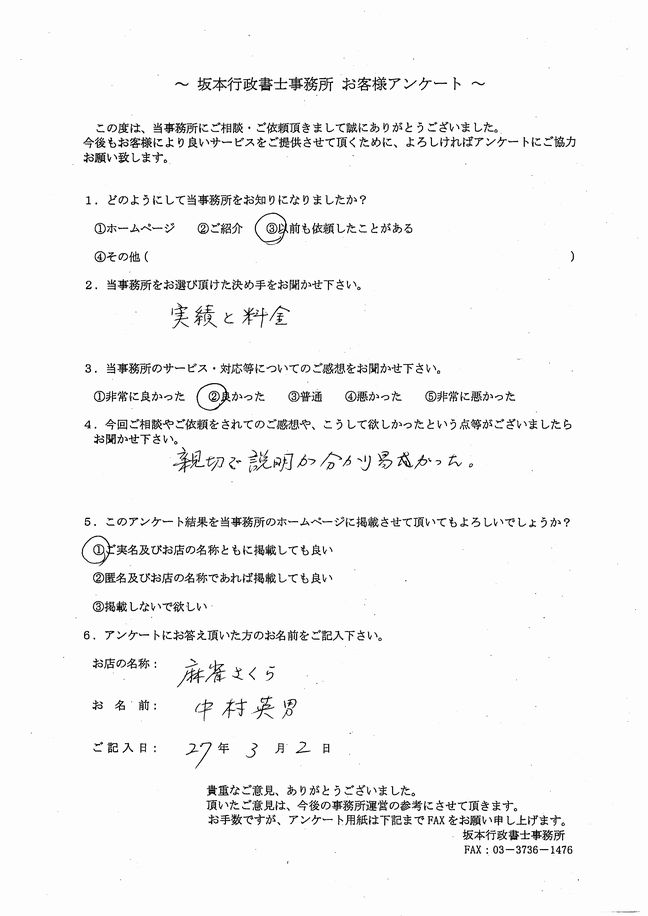 ～ 坂本行政書士事務所 お客様アンケート ～
この度は、当事務所にご相談・ご依頼頂きまして誠にありがとうございました。
今後もお客様により良いサービスをご提供させて頂くために、よろしければアンケートにご協力
お願い致します。
１．どのようにして当事務所をお知りになりましたか？
①ホームページ ②ご紹介 ③以前も依頼したことがある
④その他 ( )
２．当事務所をお選び頂けた決め手をお聞かせ下さい。
実績と料金
３．当事務所のサービス・対応等についてのご感想をお聞かせ下さい。
①非常に良かった ②良かった ③普通 ④悪かった ⑤非常に悪かった
４．今回ご相談やご依頼をされてのご感想や、こうして欲しかったという点等がございましたら
お聞かせ下さい。
親切で説明が分かり易かった。
５．このアンケート結果を当事務所のホームページに掲載させて頂いてもよろしいでしょうか？
①ご実名及びお店の名称ともに掲載しても良い
②匿名及びお店の名称であれば掲載しても良い
③掲載しないで欲しい
６．アンケートにお答え頂いた方のお名前をご記入下さい。
お店の名称： 麻雀さくら
お 名 前： 中村英男
ご記入日： 27 年 3 月 2 日
貴重なご意見、ありがとうございました。
頂いたご意見は、今後の事務所運営の参考にさせて頂きます。
お手数ですが、アンケート用紙は下記まで FAX をお願い申し上げます。
坂本行政書士事務所
FAX：03－3736－1476